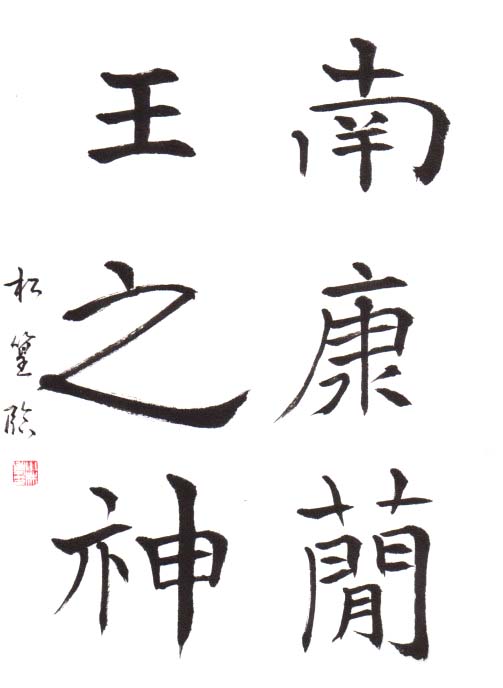 南康蕑
王之神
松篁臨